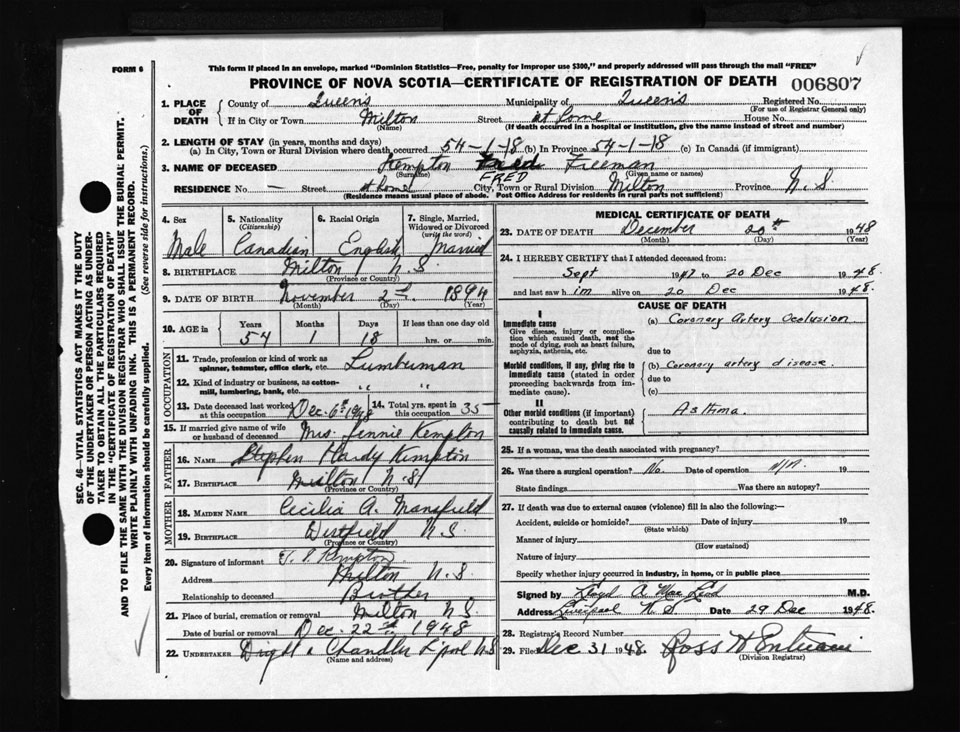 FORM 6
This form if placed in an envelope, marked "Dominion Statistics—Free, penalty for improper use $300," and properly addressed will pass through the mail "FREE"
PROVINCE OF NOVA SCOTIA—CERTIFICATE OF REGISTRATION OF DEATH 006807
1. PLACE OF DEATH { County of Queens Municipality of Queens Registered No.
(For use of Registrar General only)
If in City or Town Milton Street at home House No.
(Name) (If death occurred in a hospital or institution, give the name instead of street and number)
2. LENGTH OF STAY (in years, months and days)
(a) In City, Town or Rural Division where death occurred 54-1-18 (b) In Province 54-1-18 (c) In Canada (if immigrant)
3. NAME OF DECEASED Kempton Fred Freeman
(Surname) FRED (Given name or names)
RESIDENCE No. — Street at home City, Town or Rural Division Milton Province N.S
(Residence means usual place of abode. Post Office Address for residents in rural parts not sufficient)
4. Sex Male
5. Nationality (Citizenship) Canadian
6. Racial Origin English
7. Single, Married, Widowed or Divorced (write the word) Married
8. BIRTHPLACE Milton N.S.
(Province or Country)
9. DATE OF BIRTH November 2nd 1894
(Month) (Day) (Year)
10. AGE in Years Months Days If less than one day old
54 1 18 hrs. or min.
OCCUPATION
11. Trade, profession or kind of work as spinner, teamster, office clerk, etc. Lumberman
12. Kind of industry or business, as cotton-mill, lumbering, bank, etc. " "
13. Date deceased last worked at this occupation Dec. 6th 1948
14. Total yrs. spent in this occupation 35
15. If married give name of wife or husband of deceased Mrs. Lennie Kempton
FATHER
16. NAME Stephen Hardy Kempton
17. BIRTHPLACE Milton N.S.
(Province or Country)
MOTHER
18. MAIDEN NAME Cecilia A. Mansfield
19. BIRTHPLACE Westfield N.S.
(Province or Country)
20. Signature of informant Kempton
Address Milton N.S.
Relationship to deceased Brother
21. Place of burial, cremation or removal Milton N.S.
Date of burial or removal Dec. 22nd 1948
22. UNDERTAKER Chandler L'pool N.S
(Name and address)
MEDICAL CERTIFICATE OF DEATH
23. DATE OF DEATH December 20th 1948
(Month) (Day) (Year)
24. I HEREBY CERTIFY that I attended deceased from:
Sept 1947 to 20 Dec 1948.
and last saw him alive on 20 Dec 1948.
CAUSE OF DEATH
I
Immediate cause
Give disease, injury or complication which caused death, not the mode of dying, such as heart failure, asphyxia, asthenia, etc.
(a) Coronary Artery Occlusion
due to
Morbid conditions, if any, giving rise to immediate cause (stated in order proceeding backwards from immediate cause).
(b) Coronary artery disease
due to
(c)
II
Other morbid conditions (if important) contributing to death but not causally related to immediate cause.
Asthma.
25. If a woman, was the death associated with pregnancy?
26. Was there a surgical operation? No. Date of operation 19
State findings Was there an autopsy?
27. If death was due to external causes (violence) fill in also the following:—
Accident, suicide or homicide? Date of injury 19
(State which)
Manner of injury
(How sustained)
Nature of injury
Specify whether injury occurred in industry, in home, or in public place
Signed by Lloyd A. MacLeod M.D.
Address Liverpool N.S Date 29 Dec 1948.
28. Registrar's Record Number
29. Filed Dec 31 1948. Ross H
(Division Registrar)
SEC. 46—VITAL STATISTICS ACT MAKES IT THE DUTY
OF THE UNDERTAKER OR PERSON ACTING AS UNDER-
TAKER TO OBTAIN ALL THE PARTICULARS REQUIRED
IN THE "CERTIFICATE OF REGISTRATION OF DEATH"
AND TO FILE THE SAME WITH THE DIVISION REGISTRAR WHO SHALL ISSUE THE BURIAL PERMIT.
WRITE PLAINLY WITH UNFADING INK. THIS IS A PERMANENT RECORD.
Every item of information should be carefully supplied. (See reverse side for instructions.)